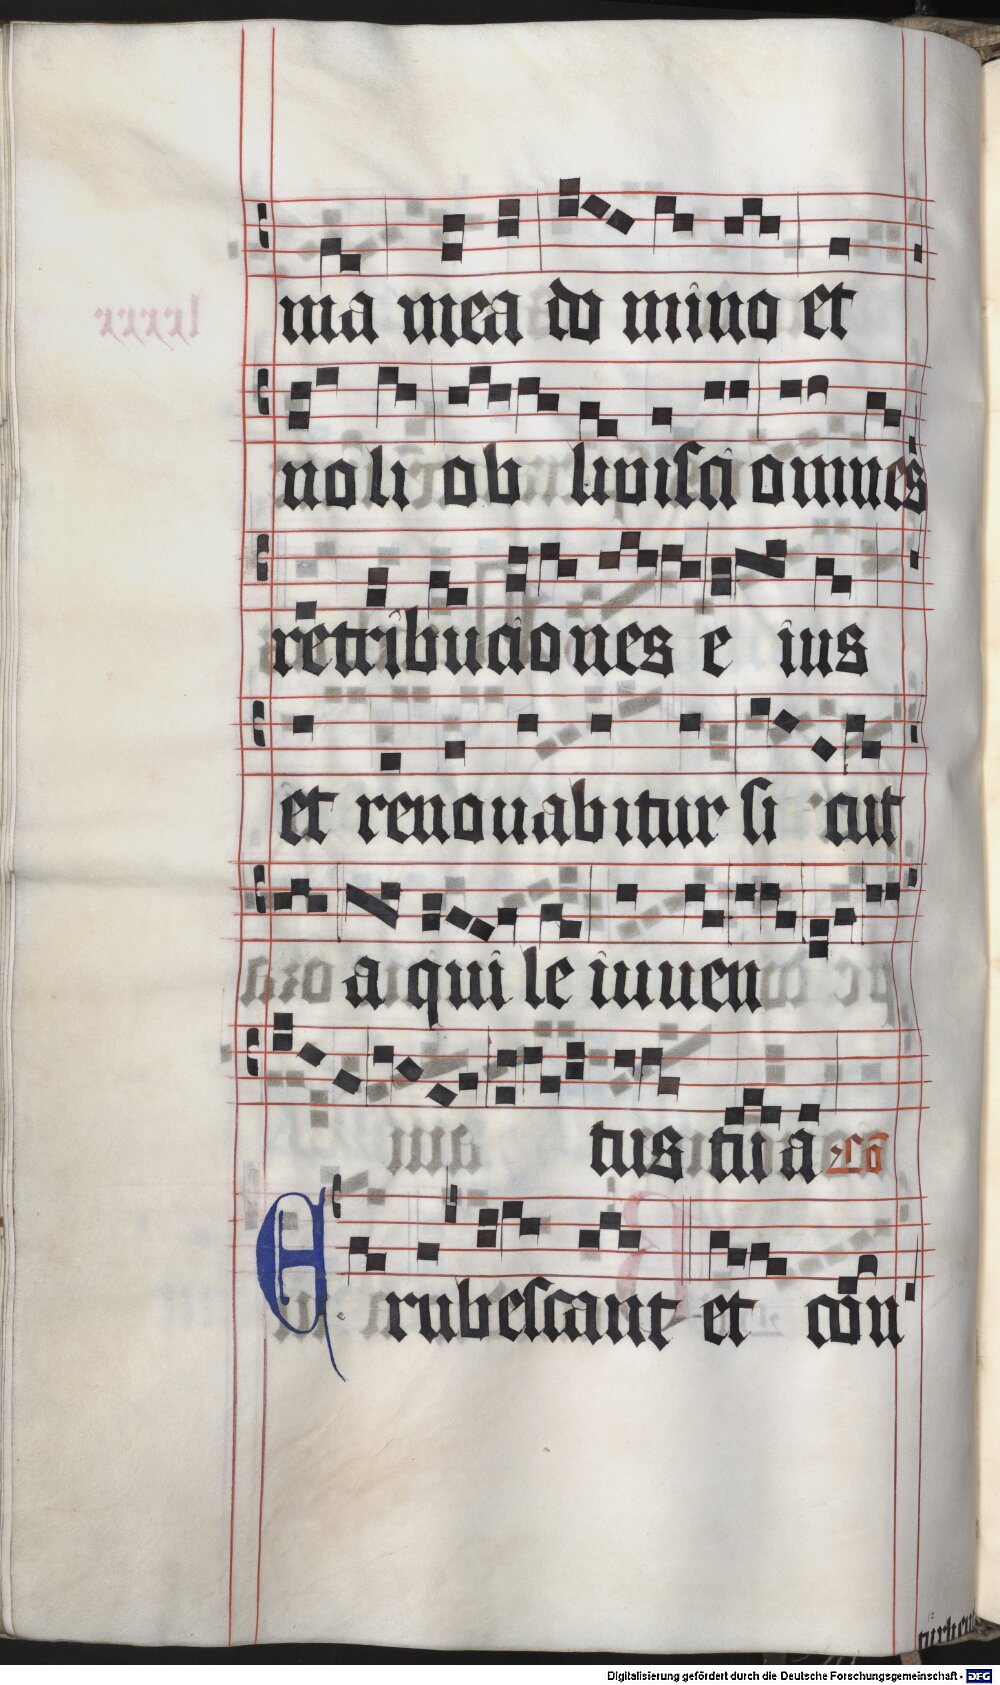 ma mea do mino et
no li ob liuisci omnes
retribuciones e ius
et renouabitur si cut
a qui le iuuen
tus tu a Cō
E rubescant et con
Digitalisierung gefördert durch die Deutsche Forschungsgemeinschaft - DFG